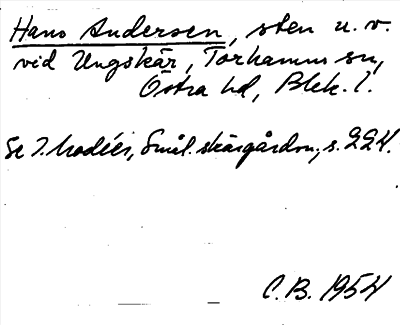 Hans Andersen, sten u. v.
vid Ungskär, Torhamns sn,
Östra hd, Blek. l.
Se I. Modéer, Smål. skärgårdsn., s. 224.
C.B. 1954